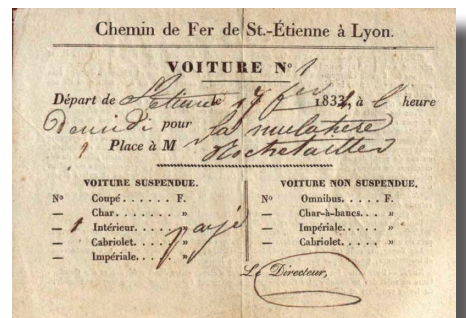 Chemin de Fer de St.-Étienne à Lyon.
VOITURE No 1
Départ de St Etienne le 17 fev 1834, à l' heure
Demidi pour La mulatiere
1 Place à M Rochetaillée
VOITURE SUSPENDUE.
No Coupé...... F.
— Char....... »
— 1 Intérieur.... payé
— Cabriolet.... »
— Impériale.... »
VOITURE NON SUSPENDUE.
No Omnibus..... F.
— Char-à-bancs... »
— Impériale.... »
— Cabriolet.... »
Le Directeur,